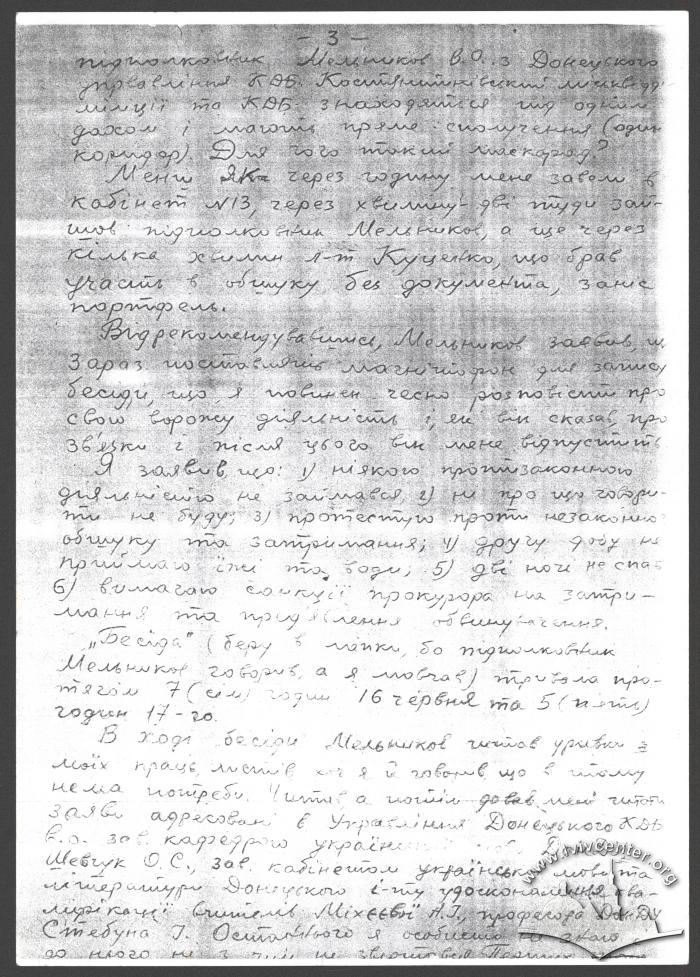 - 3 -
підполковник Мельников В.О. з Донецького
управління КДБ. Костянтинівський міськвідді
міліції та КДБ знаходяться під одним
дахом і мають пряме сполучення (один
коридор). Для чого такий маскарад?
через годину мене завели в
кабінет №13, через хвилину-дві туди зай-
шов підполковник Мельников, а ще через
кілька хвилин л-т Куценко, що брав
участь в обшуку без документа, заніс
портфель.
Відрекомендувавшись, Мельников заявив, щ
зараз поставлять магнітофон для запису
бесіди, що я повинен чесно розповісти про
свою ворожу діяльність і, як він сказав, про
зв'язки і після цього він мене відпустить
Я заявив, що: 1) ніякою протизаконною
діяльністю не займався, 2) ні про що говори-
ти не буду; 3) протестую проти незаконно
обшуку та затримання; 4) другу добу не
приймаю їжі та води; 5) дві ночі не спав
6) вимагаю санкції прокурора на затри-
мання та пред'явлення обвинувачення.
„Бесіда" (беру в лапки, бо підполковник
Мельников говорив, а я мовчав) тривала про-
тягом 7 (сім) годин 16 червня та 5 (п'яти)
годин 17-го.
В ході бесіди Мельников читав уривки з
моїх праць, листів хоч я й говорив, що в цьому
нема потреби. Читав, а потім давав мені читати
заяви адресовані в Управління Донецького КДБ
в.о. зав. кафедрою української мови
Шевчук О.С., зав. кабінетом української мови та
літератури Донецького і-ту удосконалення ква-
ліфікації вчителів Міхеєвої Н.І., професора ДонДУ
Стебуна І. Останнього я особисто не знаю і
до нього ні з чим не звертався.
www.lvivcenter.org